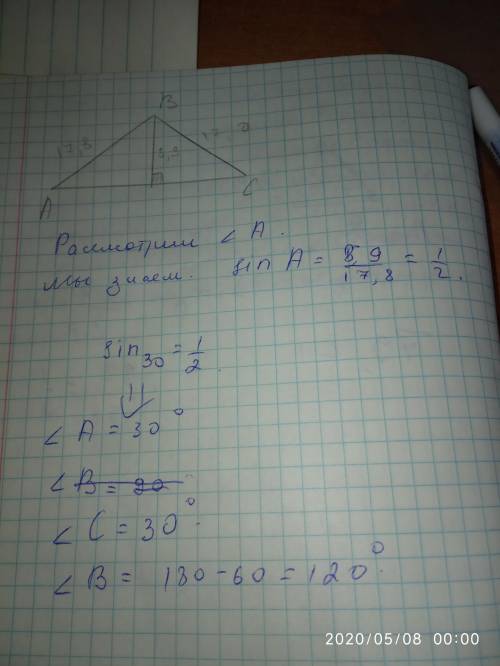 B
17,8 8,9 17
A C
Рассмотрим ∠ A.
мы знаем. sin A = 8,9/17,8 = 1/2.
sin 30 = 1/2
∠ A = 30°
∠ B = 90
∠ C = 30°.
∠ B = 180 - 60 = 120°.
2020/05/08 00:00